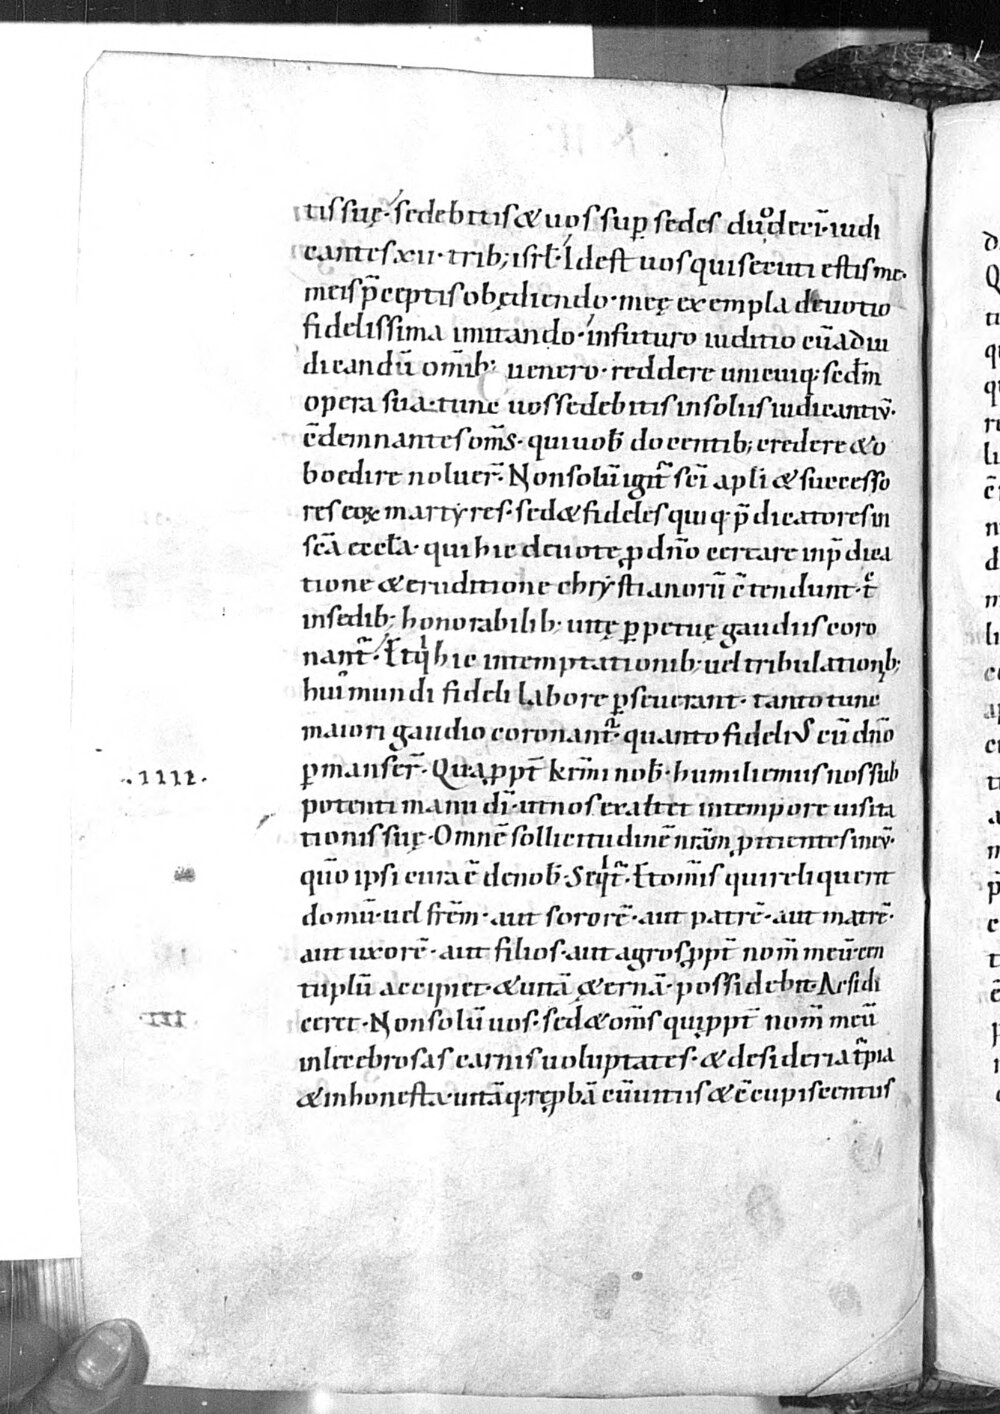 tis suę · sedebitis & uos sup̄ sedes duodecī · iudi
cantes xii · trib; isrł · Id est uos qui secuti estis me ·
meis p̄ceptis obędiendo · meę exempla deuotio
fidelissima imitando · in futuro iuditio cū ad iu
dicandū om̄ib; uenero · reddere unicuiq; secd̄m
opera sua · tunc uos sedebitis in solus iudicantiū ·
c̄demnantes om̄s · qui uob̄ docentib; credere & o
boedire noluer̄ · Non solū igit̄ sc̄i apłi & successo
res eoꝝ martyres · sed & fideles quiq · p̄dicatores in
sc̄a eccła · qui hic deuote ꝓ dn̄o certare in p̄dica
tione & eruditione chrystianorū c̄tendunt · t̄c
in sedib; honorabilib; uitę ꝑpetuę gaudiis coro
nant̄ · Et q̇ hic in temptationib; uel tribulationib;
hui᾽ mundi fideli labore ꝑseuerant · tanto tunc
maiori gaudio coronant̄ · quanto fideliꝰ cū dn̄o
ꝑmanser̄ · Quaꝓpt̄ kr̄mi nob̄ · humiliemus nos sub
· IIII ·
potenti manu dī · ut nos exaltet in tempore uisita
tionis suę · Omnē sollicitudinē nr̄am ꝓicientes in eū ·
qn̄o ipsi cura ē de nob̄ · Seqit̄ · Et om̄is qui reliquerit
domū · uel fr̄em · aut sororē · aut patrē · aut matrē ·
aut uxorē · aut filios · aut agros ꝓpt̄ nom̄ meū · cen
tuplū accipiet · & uitā ę̨ternā · possidebit · Ac si di
ceret · Non solū uos · sed & om̄s qui ꝓpt̄ nom̄ meū
· III ·
inlecebrosas carnis uoluptates · & desideria t̄pīa
& inhonesta · uitāq; reꝓbā cū uitiis & c̄cupiscentiis